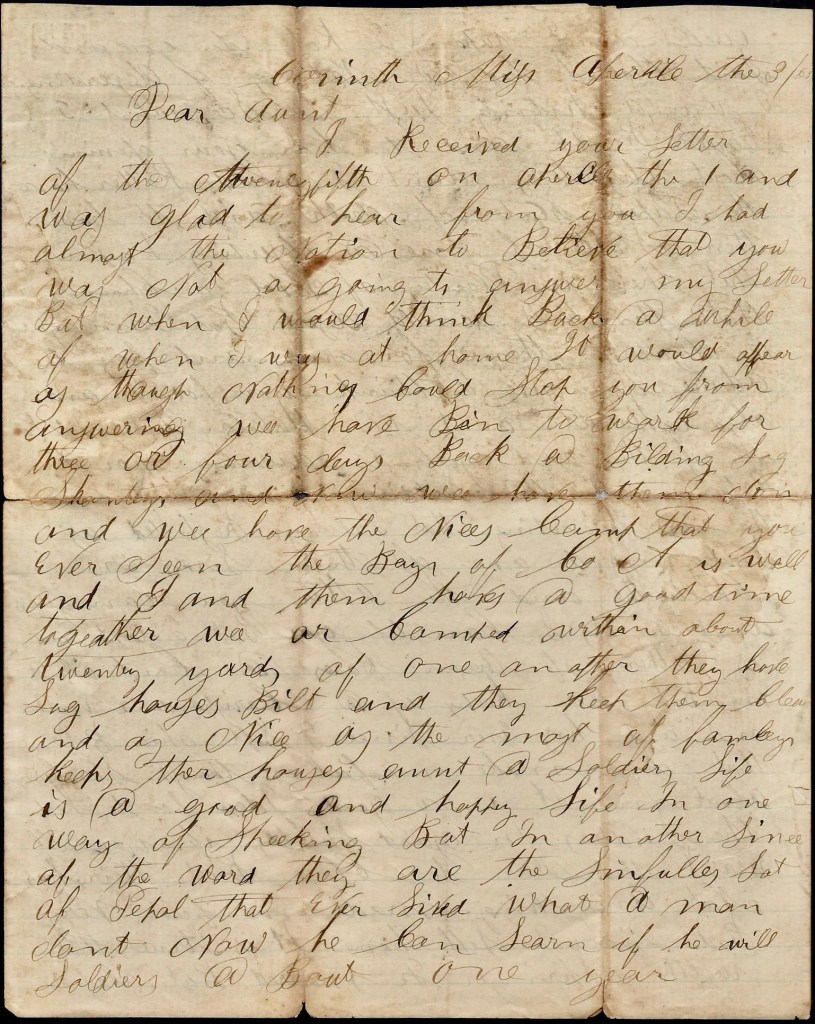 Corinth Miss Aperile the 3/
Dear Aunt
I Received your Letter
of the twentyfifth on aperile the 1 and
was glad to hear from you I had
almost the notion to Believe that you
was Not a going to answer my Letter
But when I would think Back a while
of when I was at home It would appear
as though Nothing Could Stop you from
answering wee have Bin to work for
three or four days Back a Bilding Log
Shanteys and Now wee have them don
and wee have the Nices Camp that you
Ever Seen the Boys of Co A is well
and I and them haves a good time
togeather wee ar Camped within about
twenty yards of one another they have
Log houses Bilt and they keep them Clea
and as Nice as the most of famleys
keeps ther houses aunt a Soldiers Life
is a good and happy Life In one
way of Speeking But In another Since
of the word they are the Sinfulles Lot
of Pepol that Ever Lived what a man
dont Now he Can Learn if he will
Soldiers a Bout one year